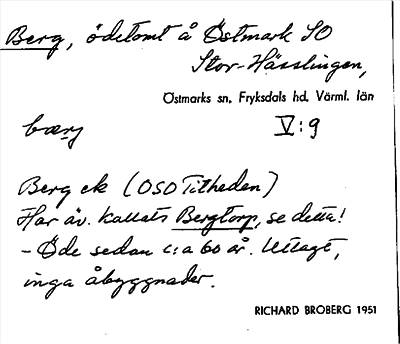 Berg, ödetomt å Östmark SO
Stor-Hässlingen,
Östmarks sn, Fryksdals hd, Värml. län
bærj V:9
Berg ek (OSO Titheden)
Har äv. kallats Bergtorp, se detta!
- Öde sedan c:a 60 år. Utlagt,
inga åbyggnader.
RICHARD BROBERG 1951